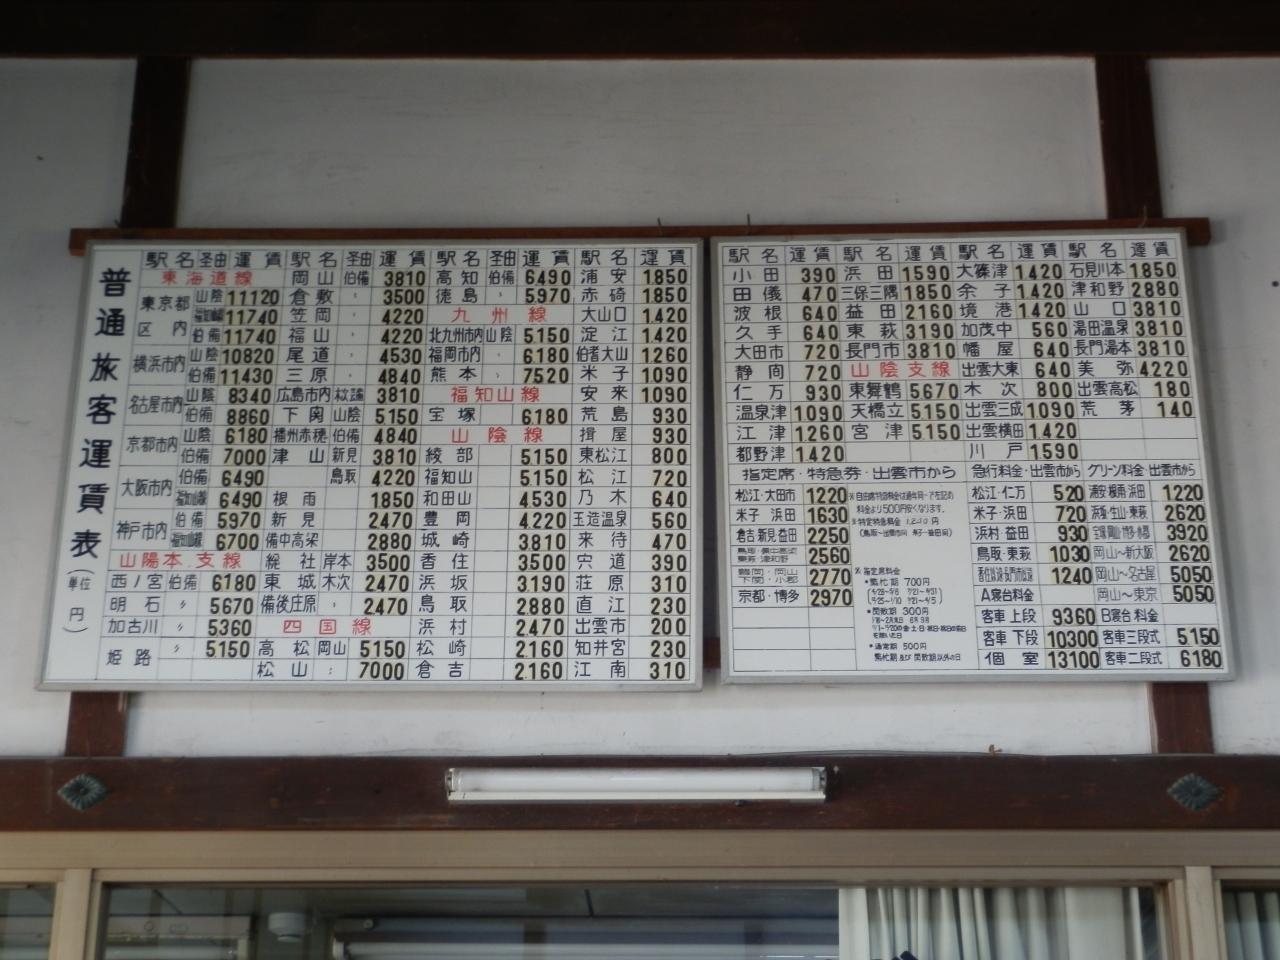 普通旅客運賃表
(単位 円)
駅名 圣由 運賃 駅名 圣由 運賃 駅名 圣由 運賃 駅名 運賃
東海道線 岡山 伯備 3810 高知 伯備 6490 浦安 1850
東京都区内 山陰 11120 倉敷 〃 3500 徳島 〃 5970 赤碕 1850
11740 笠岡 〃 4220 九州線 大山口 1420
伯備 11740 福山 〃 4220 北九州市内 山陰 5150 淀江 1420
横浜市内 山陰 10820 尾道 〃 4530 福岡市内 〃 6180 伯耆大山 1260
伯備 11430 三原 〃 4840 熊本 〃 7520 米子 1090
名古屋市内 山陰 8340 広島市内 3810 福知山線 安来 1090
伯備 8860 下関 山陰 5150 宝塚 6180 荒島 930
京都市内 山陰 6180 播州赤穂 伯備 4840 山陰線 揖屋 930
伯備 7000 津山 新見 3810 綾部 5150 東松江 800
大阪市内 伯備 6490 鳥取 4220 福知山 5150 松江 720
6490 根雨 1850 和田山 4530 乃木 640
神戸市内 伯備 5970 新見 2470 豊岡 4220 玉造温泉 560
6700 備中高梁 2880 城崎 3810 来待 470
山陽本.支線 総社 岸本 3500 香住 3500 宍道 390
西ノ宮 伯備 6180 東城 木次 2470 浜坂 3190 荘原 310
明石 〃 5670 備後庄原 〃 2470 鳥取 2880 直江 230
加古川 〃 5360 四国線 浜村 2470 出雲市 200
姫路 〃 5150 高松 岡山 5150 松崎 2160 知井宮 230
松山 〃 7000 倉吉 2160 江南 310
駅名 運賃 駅名 運賃 駅名 運賃 駅名 運賃
小田 390 浜田 1590 大篠津 1420 石見川本 1850
田儀 470 三保三隅 1850 余子 1420 津和野 2880
波根 640 益田 2160 境港 1420 山口 3810
久手 640 東萩 3190 加茂中 560 湯田温泉 3810
大田市 720 長門市 3810 幡屋 640 長門湯本 3810
静間 720 山陰支線 出雲大東 640 美弥 4220
仁万 930 東舞鶴 5670 木次 800 出雲高松 180
温泉津 1090 天橋立 5150 出雲三成 1090 荒茅 140
江津 1260 宮津 5150 出雲横田 1420
都野津 1420 川戸 1590
指定席・特急券・出雲市から 急行料金・出雲市から グリーン料金・出雲市から
松江・大田市 1220 松江・仁万 520 1220
米子 浜田 1630 米子・浜田 720 2620
倉吉 新見 益田 2250 浜村・益田 930 3920
2560 鳥取・東萩 1030 岡山〜新大阪 2620
2770 1240 岡山〜名古屋 5050
京都・博多 2970 A寝台料金 岡山〜東京 5050
客車 上段 9360 B寝台 料金
客車 下段 10300 客車三段式 5150
個室 13100 客車二段式 6180
指定席料金
繁忙期 700円
閑散期 300円
通常期 500円
繁忙期 及び 閑散期以外の日